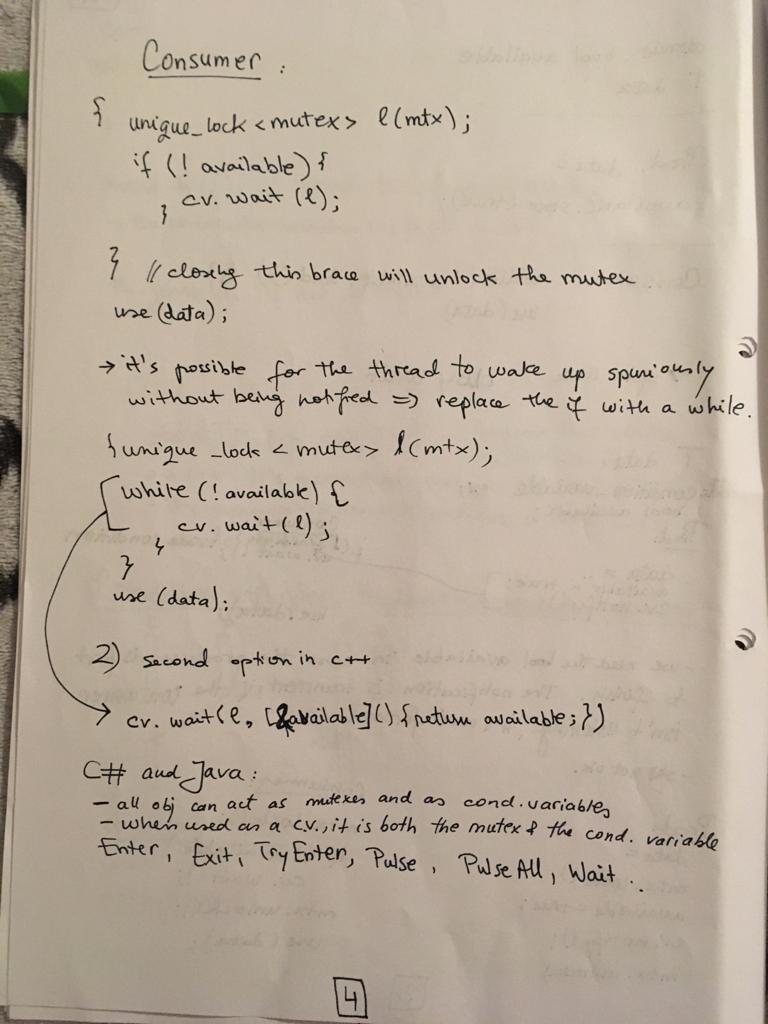 Consumer :
{ unique_lock <mutex> l(mtx);
if (! available) {
cv. wait (l);
}
} // closing this brace will unlock the mutex
use (data);
→ it's possible for the thread to wake up spuriously
without being notified => replace the if with a while.
{ unique_lock <mutex> l(mtx);
while (! available) {
cv. wait (l);
}
}
use (data);
2) second option in c++
cv. wait (l, [&available] () { return available; })
C# and Java:
- all obj can act as mutexes and as cond. variables
- when used as a c.v., it is both the mutex & the cond. variable
Enter, Exit, TryEnter, Pulse, PulseAll, Wait..
4